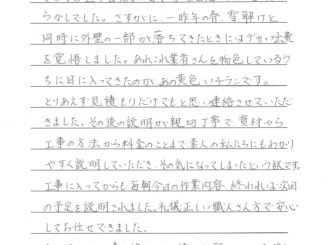 らかしてました。さすがに、一昨年の春、雪解けと
同時に外壁の一部が落ちてきたときにはデカい出費
を覚悟しました。あれこれ業者さんを物色しているう
ちに目に入ってきたのが、あの黄色いチラシです。
とりあえず見積もりだけでもと思い連絡させていただ
きました。その後の説明が親切丁寧で、資材から
工事の方法から料金のことまで素人の私たちにもわかり
やすく説明していただき、その気になってしまったという訳です。
工事に入ってからも毎朝今日の作業内容、終われば次回
の予定を説明されました。礼儀正しい職人さん方で安心
してお任せできました。